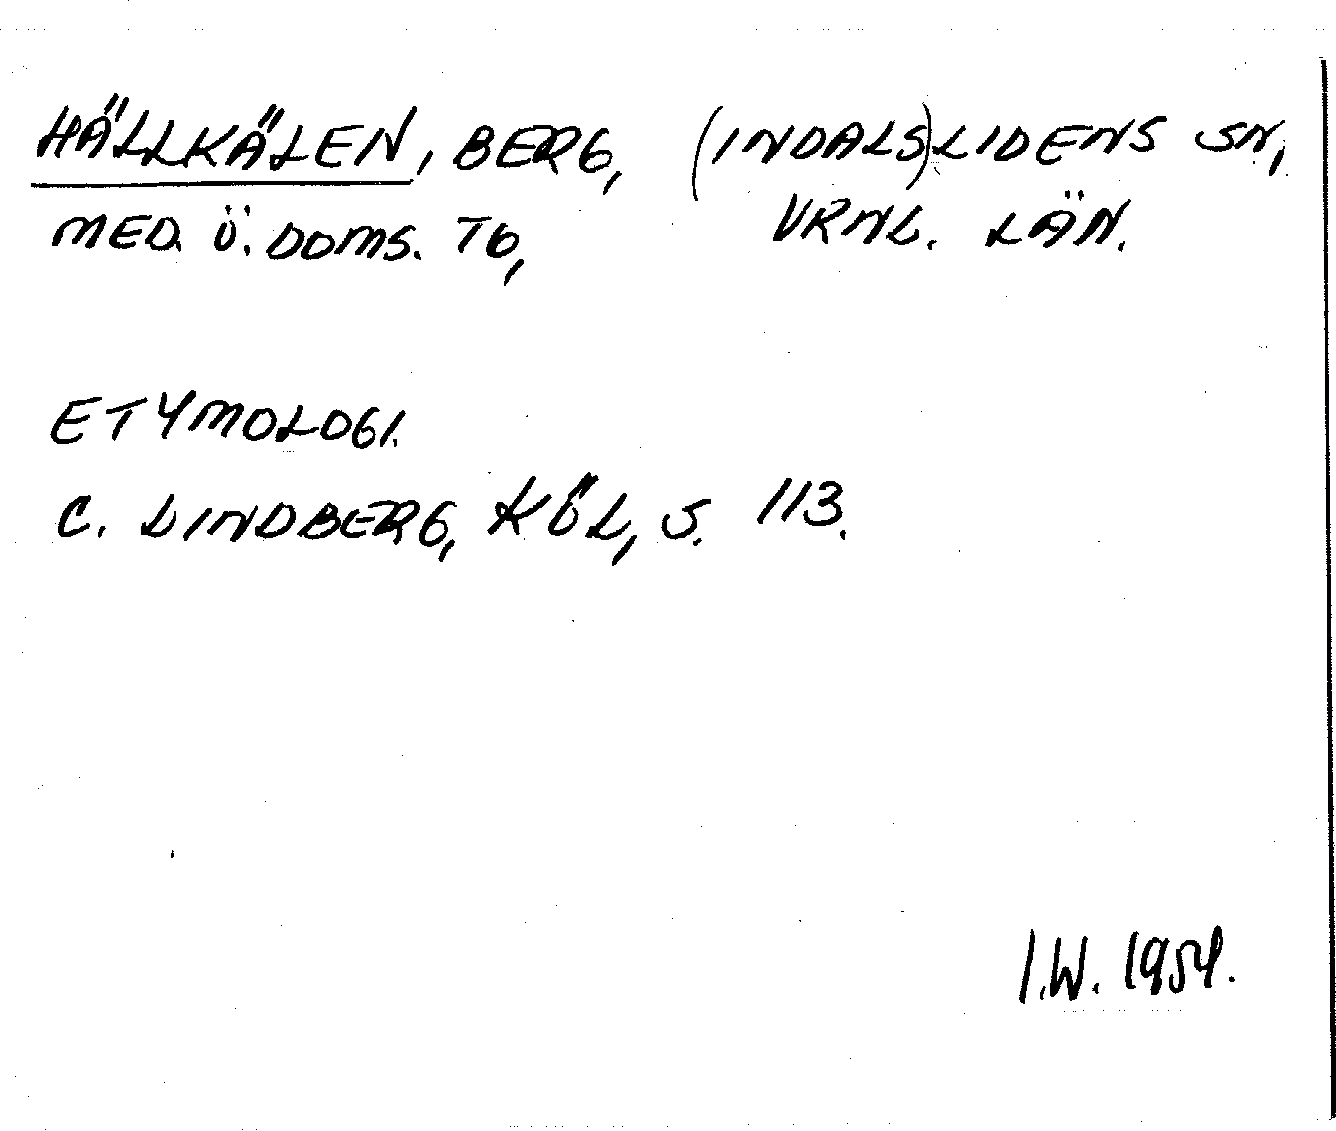 HÄLLKÄLEN, BERG, (INDALS)LIDENS SN,
MED. Ö. DOMS. TG, VRNL. LÄN.
ETYMOLOGI.
C. LINDBERG, KÖL, S. 113.
I.W. 1954.